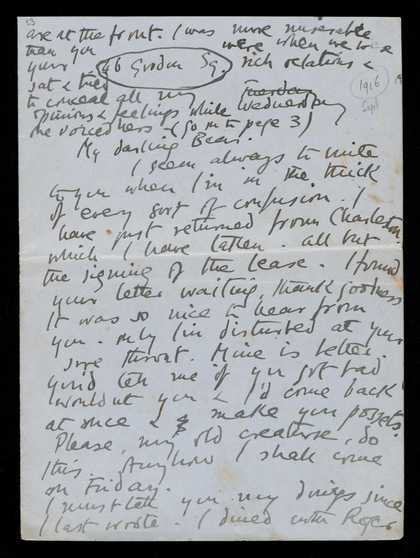 3
are at the front. I was more miserable
than you were when we were
your rich relations &
46 Gordon Sq.
sat & tried
to conceal all my
opinions & feelings while
one voiced hers - (go on to page 3)
Tuesday
Wednesday
1916
Sept
My darling Bear.
I seem always to write
to you when I'm in the thick
of every sort of confusion. I
have just returned from Charleston
which I have taken - all but
the signing of the lease. I found
your letter waiting, thank goodness
It was so nice to hear from
you - only I'm disturbed at your
sore throat. Mine is better.
you'd tell me if you got bad
wouldnt you & I'd come back
at once & make you possets.
Please, my old creature, do
this. Anyhow I shall come
on Friday.
I must tell you my doings since
I last wrote. I dined with Roger